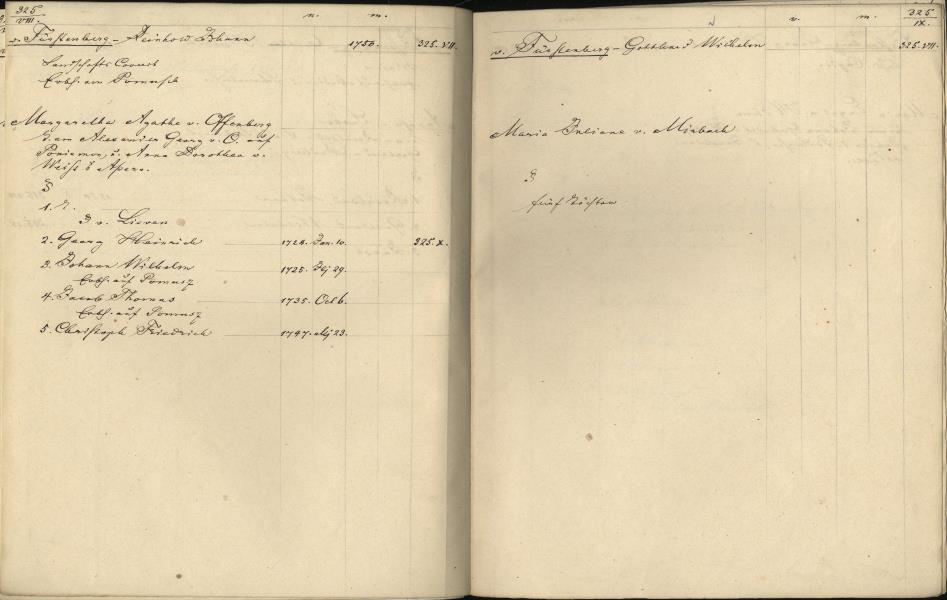 325
VIII.
n. m.
v. Fürstenberg - Reinhold Johann 1750. 325. VII.
Landschafts
Erbh. von
Margaretha Agatha v. Offenberg
Alexander Georg v. O. auf
u. Anna Dorothea v.
1.
v. Lieven
2. Georg Heinrich 1724. Jan. 10. 325. X.
3. Johann Wilhelm 1725. 29.
Erbh. auf Pomusz
4. Jacob Thomas 1735. Oct 6.
Erbh. auf Pomusz
5. Christoph Friedrich 1747. 23.
325
IX.
n. m.
v. Fürstenberg - Gotthard Wilhelm 325. VII.
Maria Juliana v. Mirbach
fünf Töchter